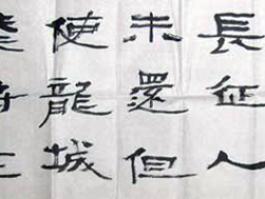 長征人
未還但
使龍城